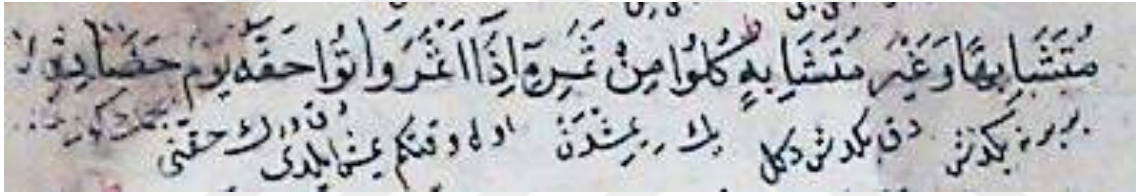 مُتَشَابِهًا وَغَيْرَ مُتَشَابِهٍ كُلُوا مِنْ ثَمَرِهِ اِذَا اَثْمَرَ وَاٰتُوا حَقَّهُ يَوْمَ حَصَادِهِ وَلَا
بربرنه بكدش دق بكدش دكل يك يمشندن اول وقتكم يمش ايلدى دق ورك حقنى